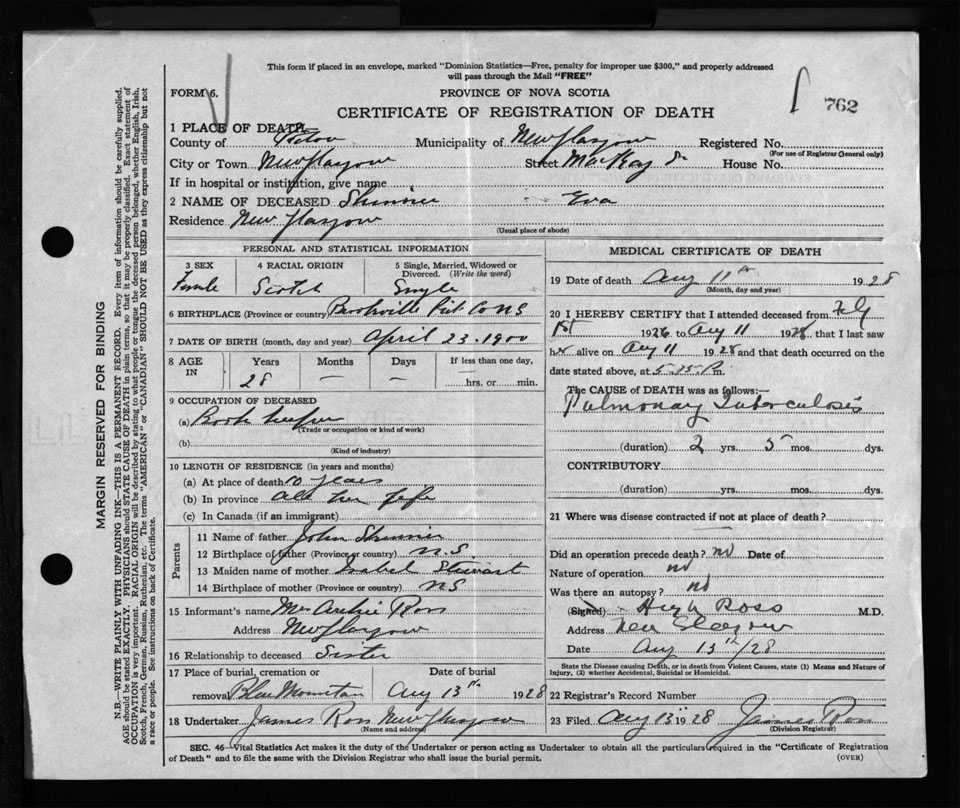 This form if placed in an envelope, marked "Dominion Statistics—Free, penalty for improper use $300," and properly addressed
will pass through the Mail "FREE"
FORM 6.
PROVINCE OF NOVA SCOTIA
762
CERTIFICATE OF REGISTRATION OF DEATH
1 PLACE OF DEATH
County of Pictou Municipality of New Glasgow Registered No.
(For use of Registrar General only)
City or Town New Glasgow Street MacKay St House No.
If in hospital or institution, give name
2 NAME OF DECEASED Skinner Eva
Residence New Glasgow
(Usual place of abode)
PERSONAL AND STATISTICAL INFORMATION
3 SEX 4 RACIAL ORIGIN 5 Single, Married, Widowed or Divorced. (Write the word)
Female Scotch Single
6 BIRTHPLACE (Province or country) Brookville Pict Co NS
7 DATE OF BIRTH (month, day and year) April 23. 1900
8 AGE IN Years Months Days If less than one day,
28 — — hrs. or min.
9 OCCUPATION OF DECEASED
(a) Book keeper
(Trade or occupation or kind of work)
(b)
(Kind of industry)
10 LENGTH OF RESIDENCE (in years and months)
(a) At place of death 10 years
(b) In province all her life
(c) In Canada (if an immigrant)
Parents
11 Name of father John Skinner
12 Birthplace of father (Province or country) N.S.
13 Maiden name of mother Isabel Stewart
14 Birthplace of mother (Province or country) NS
15 Informant's name Mrs Archie Ross
Address New Glasgow
16 Relationship to deceased Sister
17 Place of burial, cremation or Date of burial
removal Blue Mountain Aug 13th 1928
18 Undertaker James Ross New Glasgow
(Name and address)
MEDICAL CERTIFICATE OF DEATH
19 Date of death Aug 11th 1928
(Month, day and year)
20 I HEREBY CERTIFY that I attended deceased from
1st 1926 to Aug 11 1928, that I last saw
her alive on Aug 11 1928 and that death occurred on
date stated above, at 5.15 P.m.
The CAUSE of DEATH was as follows:—
Pulmonary Tuberculosis
(duration) 2 yrs. 5 mos. dys.
CONTRIBUTORY
(duration) yrs. mos. dys.
21 Where was disease contracted if not at place of death?
—
Did an operation precede death? no Date of
Nature of operation no
Was there an autopsy? no
(Signed) Hugh Ross M.D.
Address New Glasgow
Date Aug 13th/28
State the Disease causing Death, or in death from Violent Causes, state (1) Means and Nature of
Injury, (2) whether Accidental, Suicidal or Homicidal.
22 Registrar's Record Number
23 Filed Aug 13th 1928 James Ross
(Division Registrar)
SEC. 46—Vital Statistics Act makes it the duty of the Undertaker or person acting as Undertaker to obtain all the particulars required in the "Certificate of Registration
of Death" and to file the same with the Division Registrar who shall issue the burial permit.
(OVER)
MARGIN RESERVED FOR BINDING
N.B.—WRITE PLAINLY WITH UNFADING INK—THIS IS A PERMANENT RECORD. Every item of information should be carefully supplied.
AGE should be stated EXACTLY. PHYSICIANS should STATE CAUSE OF DEATH in plain terms, so that it may be properly classified. Exact statement of
OCCUPATION is very important. RACIAL ORIGIN will be described by stating to what people or tongue the deceased person belonged, whether English, Irish,
Scotch, French, German, Russian, Ruthenian, etc. The terms "AMERICAN" or "CANADIAN" SHOULD NOT BE USED as they express citizenship but not
a race or people. See instructions on back of Certificate.